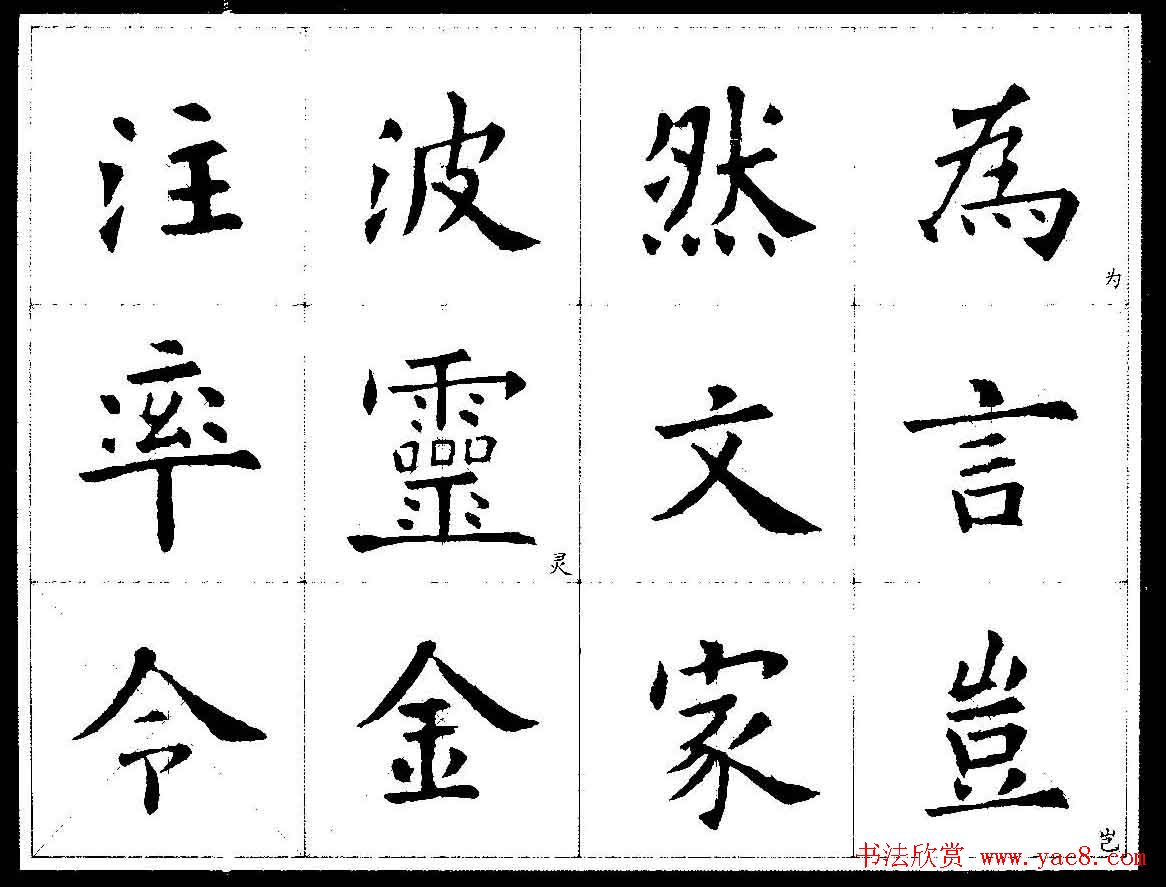 注波然為
为
率靈文言
灵
令金家豈
岂
书法欣赏 www.yac8.com